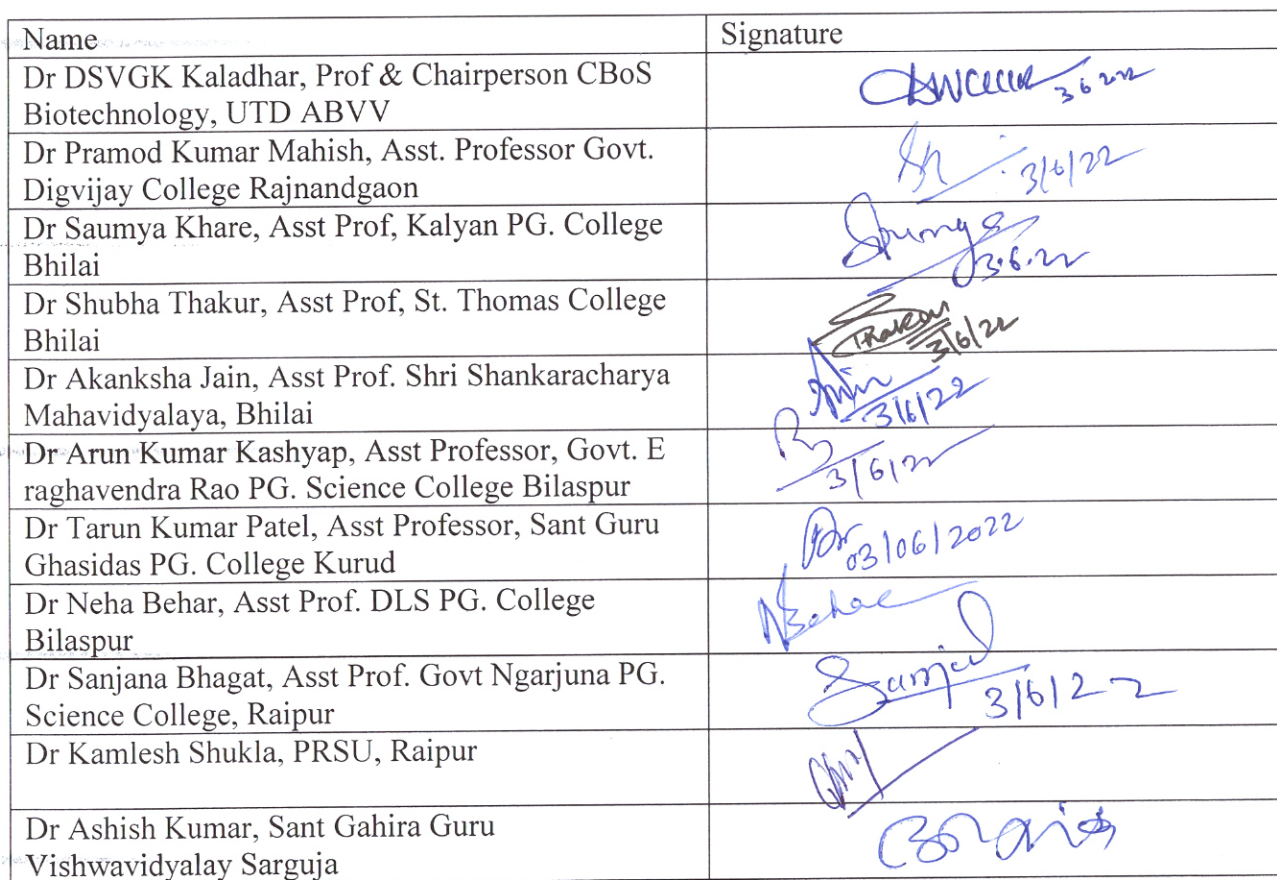 Name Signature
Dr DSVGK Kaladhar, Prof & Chairperson CBoS
Biotechnology, UTD ABVV
3 6 2022
Dr Pramod Kumar Mahish, Asst. Professor Govt.
Digvijay College Rajnandgaon
3/6/22
Dr Saumya Khare, Asst Prof, Kalyan PG. College
Bhilai
Saumya
3.6.22
Dr Shubha Thakur, Asst Prof, St. Thomas College
Bhilai
Thakur
3/6/22
Dr Akanksha Jain, Asst Prof. Shri Shankaracharya
Mahavidyalaya, Bhilai
3/6/22
Dr Arun Kumar Kashyap, Asst Professor, Govt. E
raghavendra Rao PG. Science College Bilaspur
3/6/22
Dr Tarun Kumar Patel, Asst Professor, Sant Guru
Ghasidas PG. College Kurud
03/06/2022
Dr Neha Behar, Asst Prof. DLS PG. College
Bilaspur
NBehar
Dr Sanjana Bhagat, Asst Prof. Govt Ngarjuna PG.
Science College, Raipur
3/6/22
Dr Kamlesh Shukla, PRSU, Raipur
Dr Ashish Kumar, Sant Gahira Guru
Vishwavidyalay Sarguja